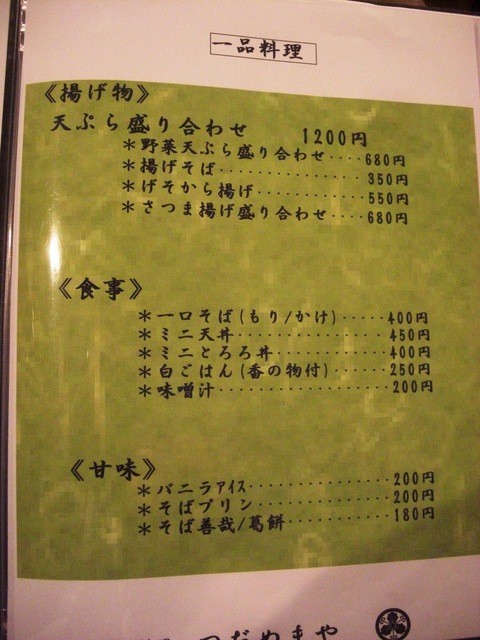 一品料理
《揚げ物》
天ぷら盛り合わせ 1200円
＊野菜天ぷら盛り合わせ････680円
＊揚げそば････････････350円
＊げそから揚げ･･････････550円
＊さつま揚げ盛り合わせ････680円
《食事》
＊一口そば(もり/かけ)･････400円
＊ミニ天丼･･････････････450円
＊ミニとろろ丼･･･････････400円
＊白ごはん(香の物付)･･････250円
＊味噌汁･･･････････････200円
《甘味》
＊バニラアイス･･････････････200円
＊そばプリン･････････････200円
＊そば善哉/葛餅･･････････180円